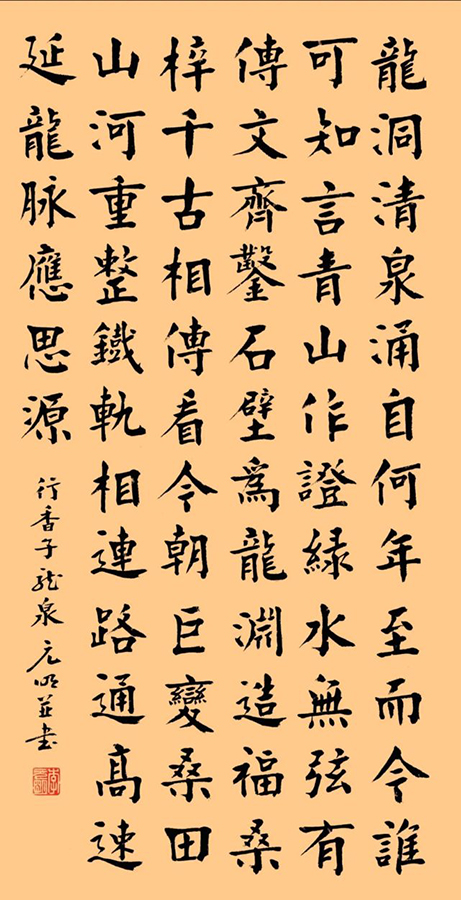 龍洞清泉涌自何年至而今誰
可知言青山作證緑水無弦有
傳文齊鑿石壁爲龍淵造福桑
梓千古相傳看今朝巨變桑田
山河重整鐵軌相連路通高速
延龍脉應思源
行香子龍泉元明並書